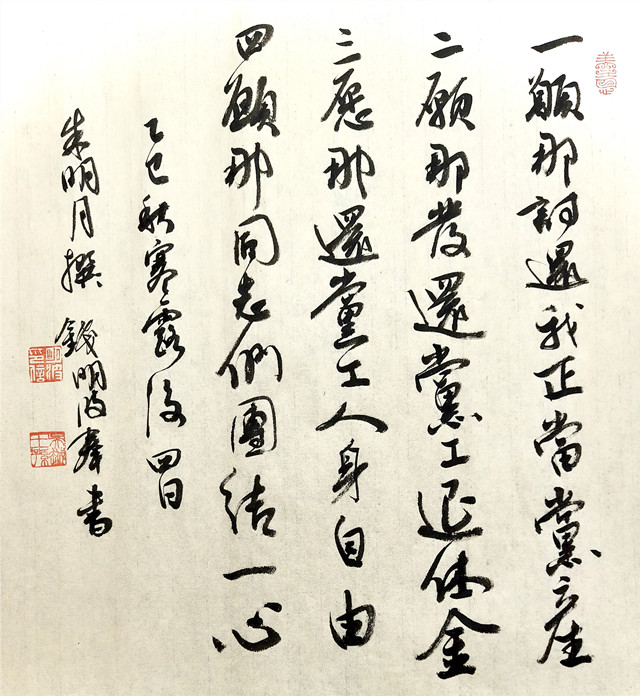 一願那討還我正當黨
二願那發還黨工退休金
三愿那還黨工人身自由
四願那同志們團結一心
乙巳秋寒露後四日
朱明月撰 錢明書